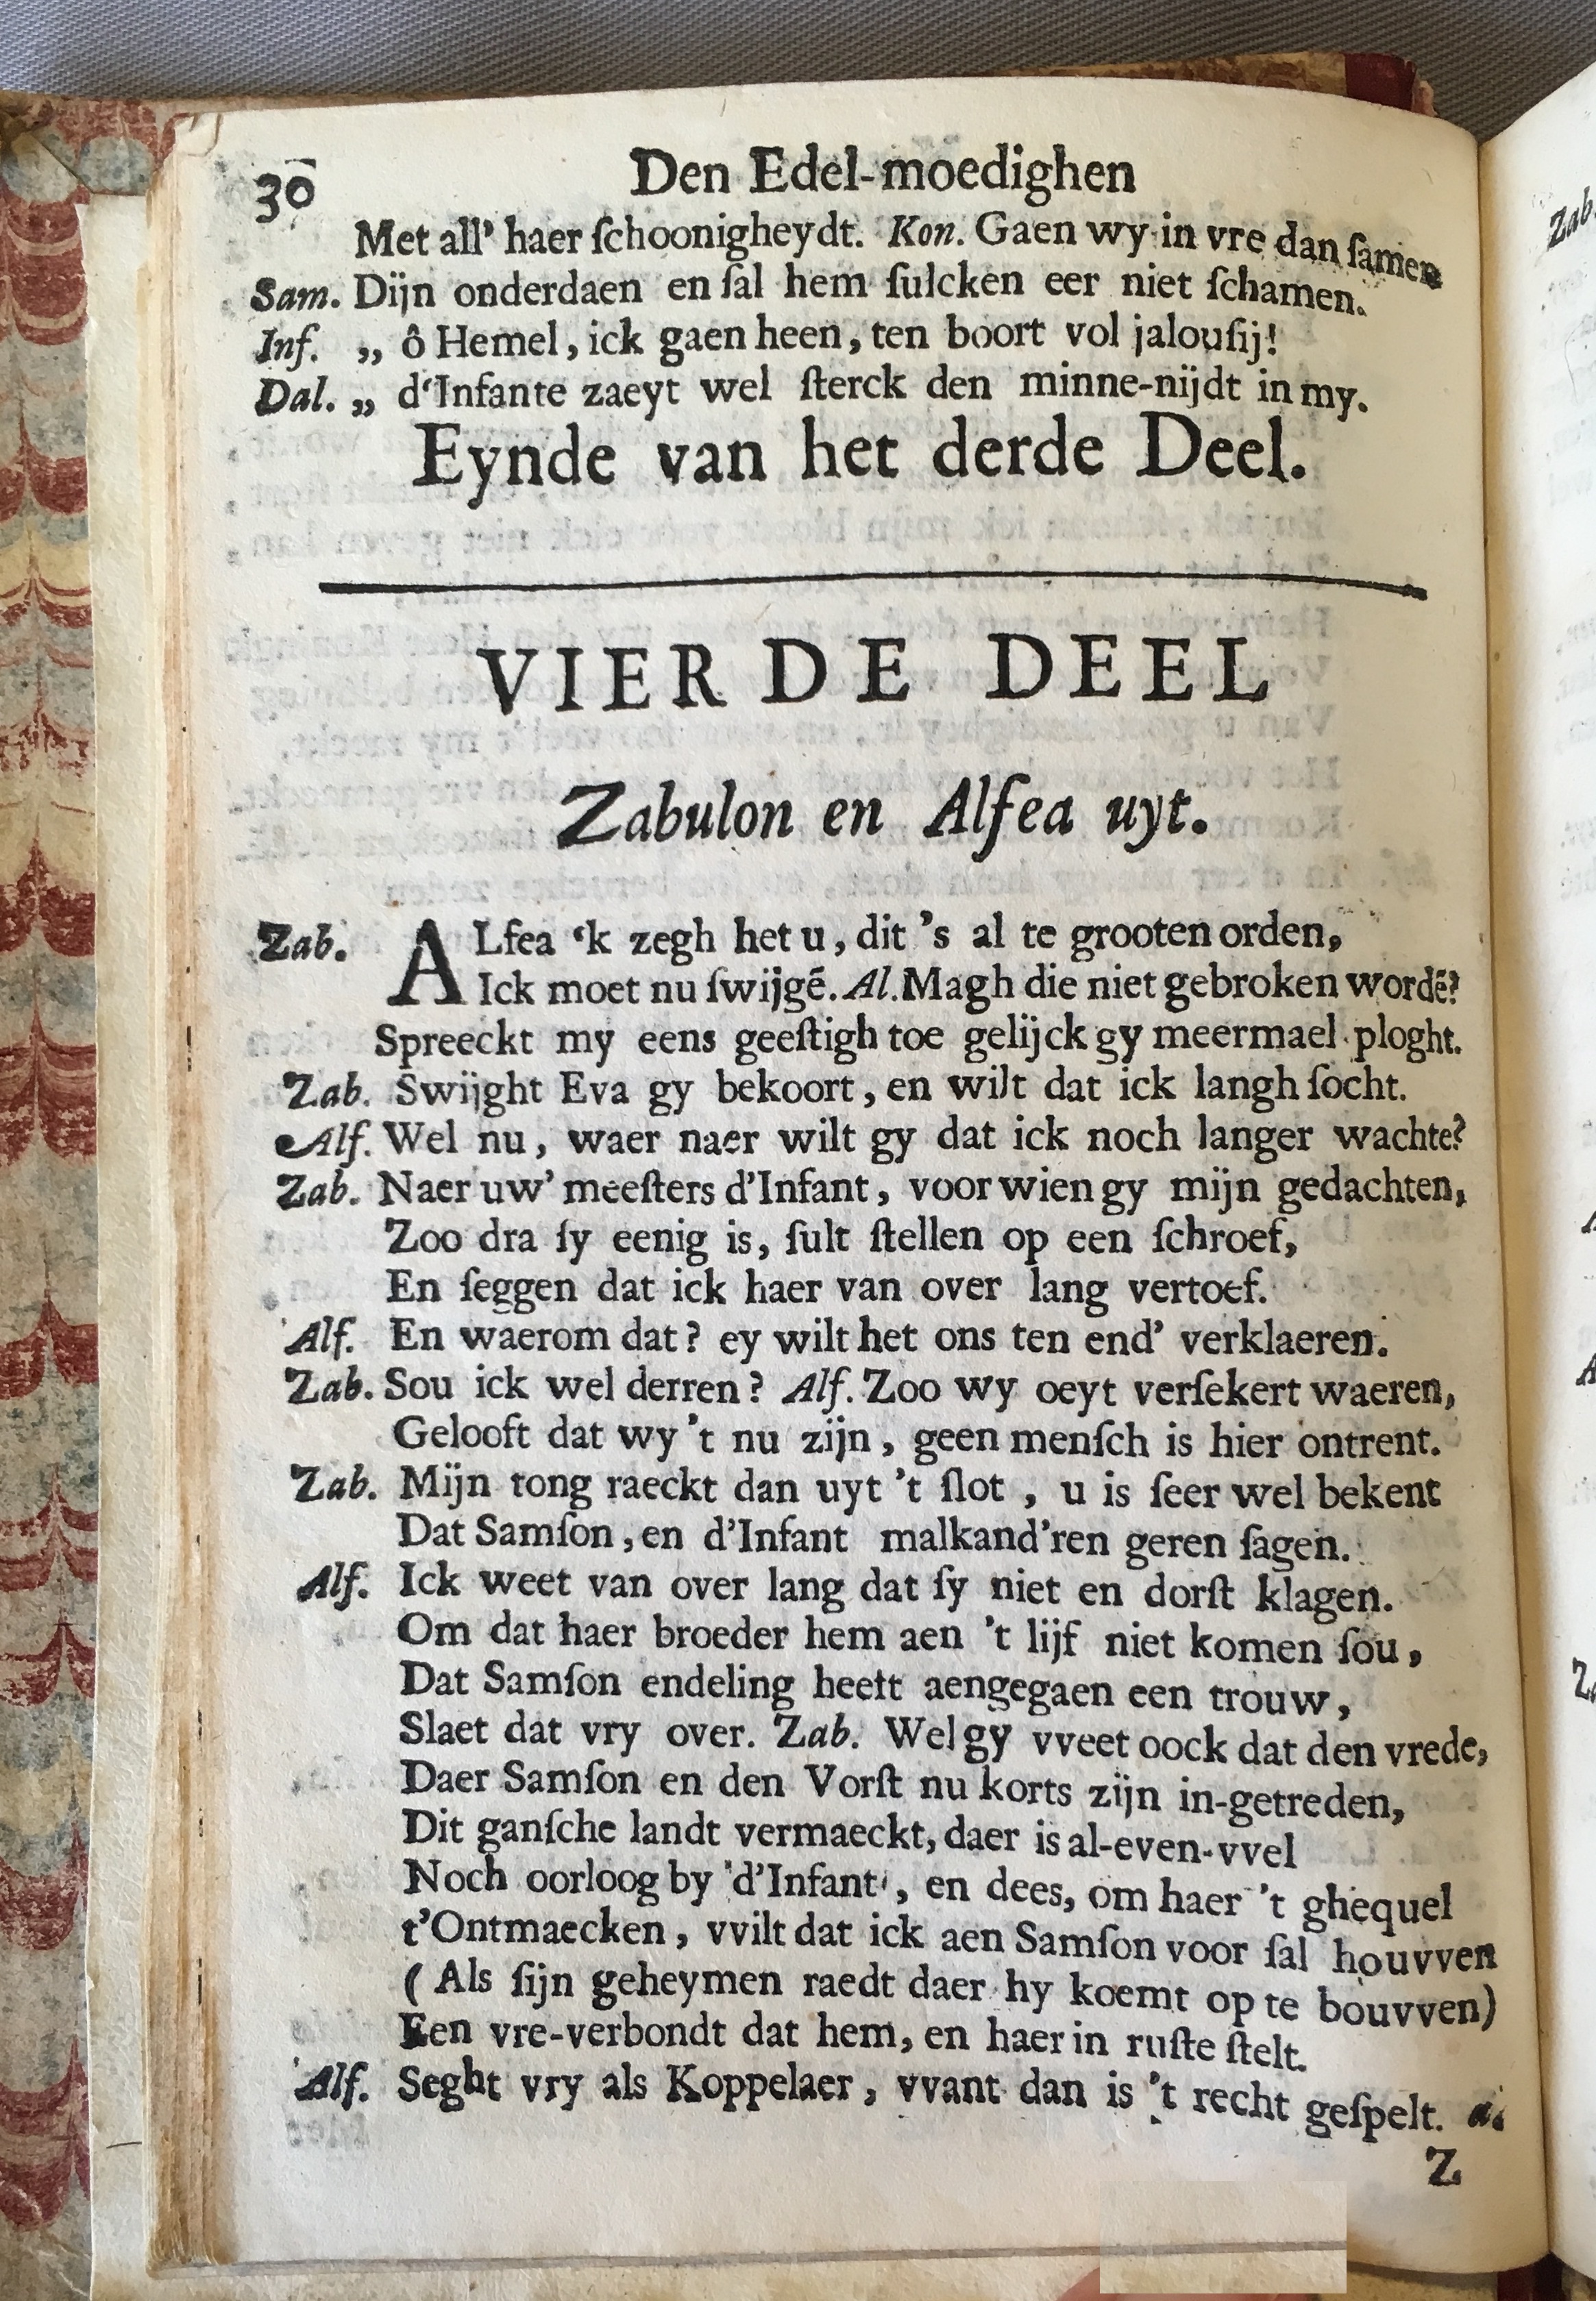 30 Den Edel-moedighen
Met all' haer ſchoonigheydt. Kon. Gaen wy in vre dan ſamen
Sam. Dijn onderdaen en ſal hem ſulcken eer niet ſchamen.
Inf. „ ô Hemel, ick gaen heen, ten boort vol jalouſij!
Dal. „ d'Infante zaeyt wel ſterck den minne-nijdt in my.
Eynde van het derde Deel.
VIERDE DEEL
Zabulon en Alfea uyt.
Zab. ALfea ‘k zegh het u, dit 's al te grooten orden,
Ick moet nu ſwijgē. Al. Magh die niet gebroken wordē?
Spreeckt my eens geeſtigh toe gelijck gy meermael ploght.
Zab. Swijght Eva gy bekoort, en wilt dat ick langh ſocht.
Alf. Wel nu, waer naer wilt gy dat ick noch langer wachte?
Zab. Naer uw' meeſters d'Infant, voor wien gy mijn gedachten,
Zoo dra ſy eenig is, ſult ſtellen op een ſchroef,
En ſeggen dat ick haer van over lang vertoef.
Alf. En waerom dat? ey wilt het ons ten end' verklaeren.
Zab. Sou ick wel derren? Alf. Zoo wy oeyt verſekert waeren,
Gelooft dat wy 't nu zijn, geen menſch is hier ontrent.
Zab. Mijn tong raeckt dan uyt 't ſlot, u is ſeer wel bekent
Dat Samſon, en d'Infant malkand'ren geren ſagen.
Alf. Ick weet van over lang dat ſy niet en dorſt klagen.
Om dat haer broeder hem aen 't lijf niet komen ſou,
Dat Samſon endeling heeft aengegaen een trouw,
Slaet dat vry over. Zab. Wel gy vveet oock dat den vrede,
Daer Samſon en den Vorſt nu korts zijn in-getreden,
Dit ganſche landt vermaeckt, daer is al-even-vvel
Noch oorloog by d'Infant, en dees, om haer 't ghequel
t'Ontmaecken, vvilt dat ick aen Samſon voor ſal houvven
(Als ſijn geheymen raedt daer hy koemt op te bouvven)
Een vre-verbondt dat hem, en haer in ruſte ſtelt.
Alf. Seght vry als Koppelaer, vvant dan is 't recht geſpelt.
Z